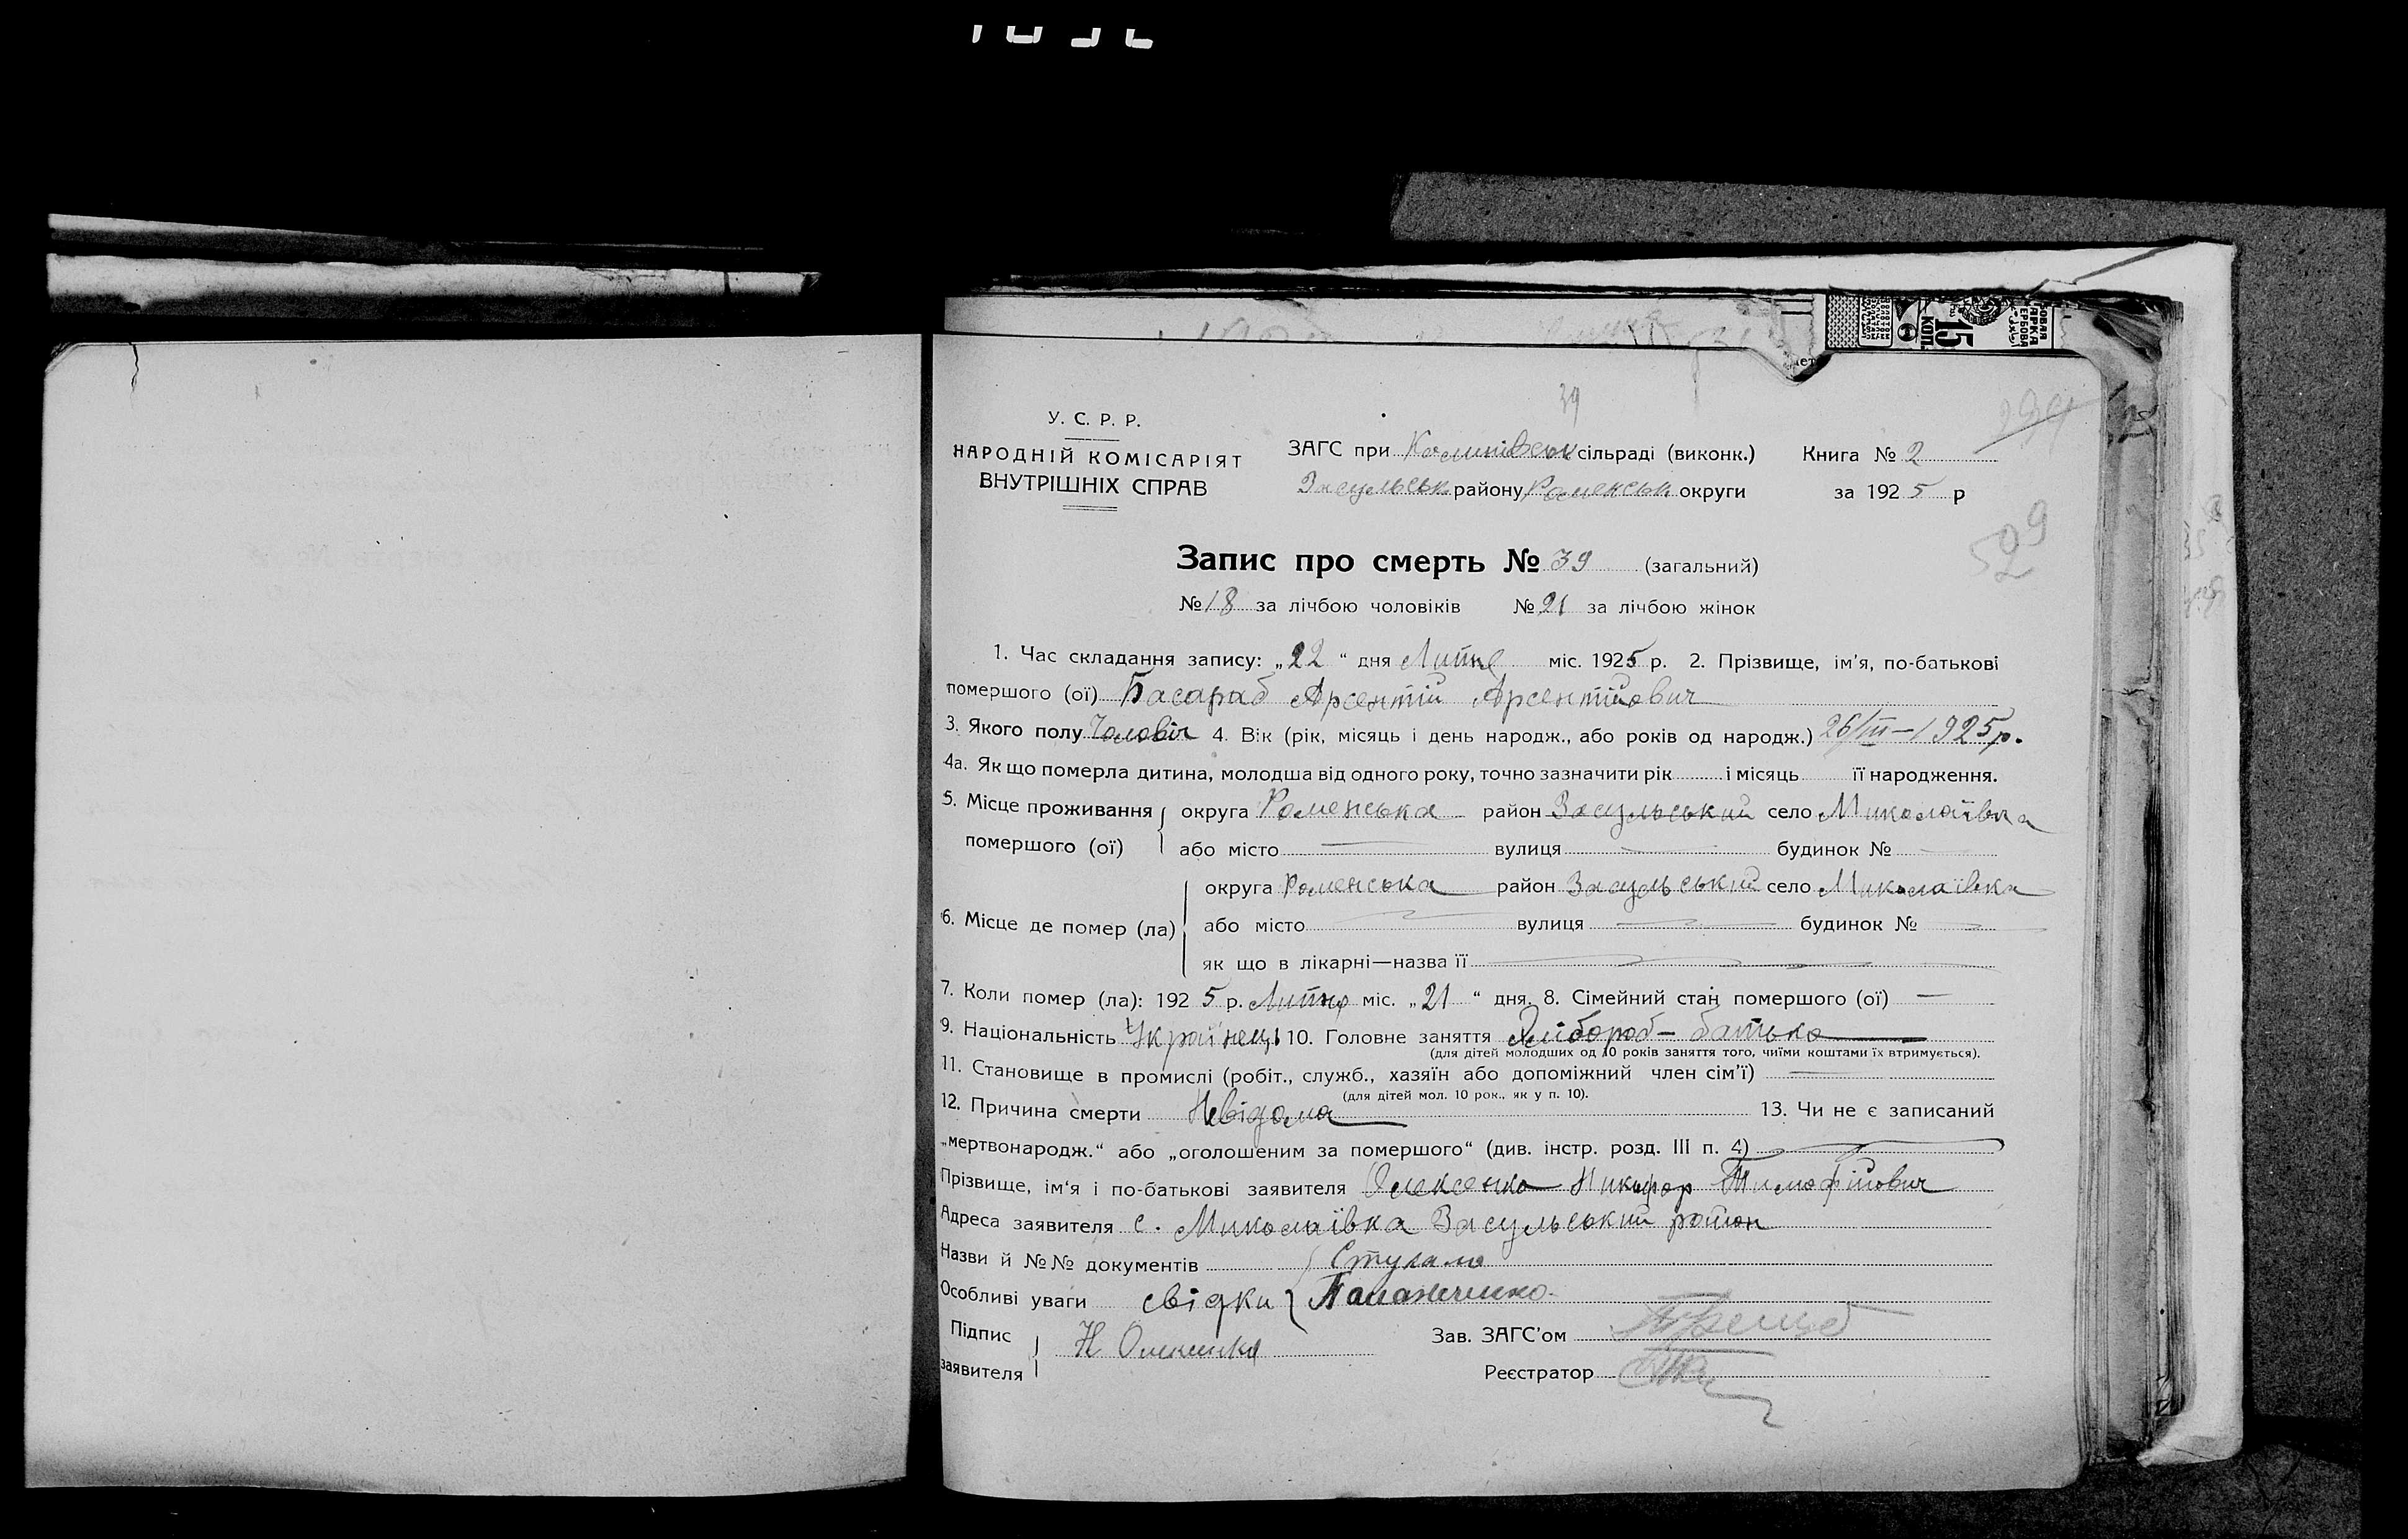 39
У. С. Р. Р.
НАРОДНІЙ КОМІСАРІЯТ
ВНУТРІШНІХ СПРАВ
ЗАГС при сільраді (виконк.)
Засульськ району Роменськ округи
Книга № 2
за 1925 р
15 коп.
529
Запис про смерть № 39 (загальний)
№ 18 за лічбою чоловіків № 21 за лічбою жінок
1. Час складання запису: „22“ дня Липня міс. 1925 р. 2. Прізвище, ім'я, по-батькові
помершого (ої) Басараб Арсентій Арсентійович
3. Якого полу Чоловіч 4. Вік (рік, місяць і день народж., або років од народж.) 26/III—1925р.
4а. Як що померла дитина, молодша від одного року, точно зазначити рік і місяць її народження.
5. Місце проживання помершого (ої) округа Роменська район Засульський село Миколаївка
або місто — вулиця — будинок № —
6. Місце де помер (ла) округа Роменська район Засульський село Миколаївка
або місто — вулиця — будинок № —
як що в лікарні—назва її —
7. Коли помер (ла): 1925 р. Липня міс. „21“ дня. 8. Сімейний стан помершого (ої) —
9. Національність Українец 10. Головне заняття Хлібороб — батько
(для дітей молодших од 10 років заняття того, чиїми коштами їх втримується).
11. Становище в промислі (робіт., служб., хазяїн або допоміжний член сім'ї) —
(для дітей мол. 10 рок., як у п. 10).
12. Причина смерти Невідома 13. Чи не є записаний
„мертвонародж.“ або „оголошеним за помершого“ (див. інстр. розд. III п. 4) —
Прізвище, ім'я і по-батькові заявителя Олексенко Никифор Тимофійович
Адреса заявителя с. Миколаївка Засульський район
Назви й №№ документів Стугало
Особливі уваги свідки
Підпис заявителя Н Олексенко
Зав. ЗАГС'ом
Реєстратор